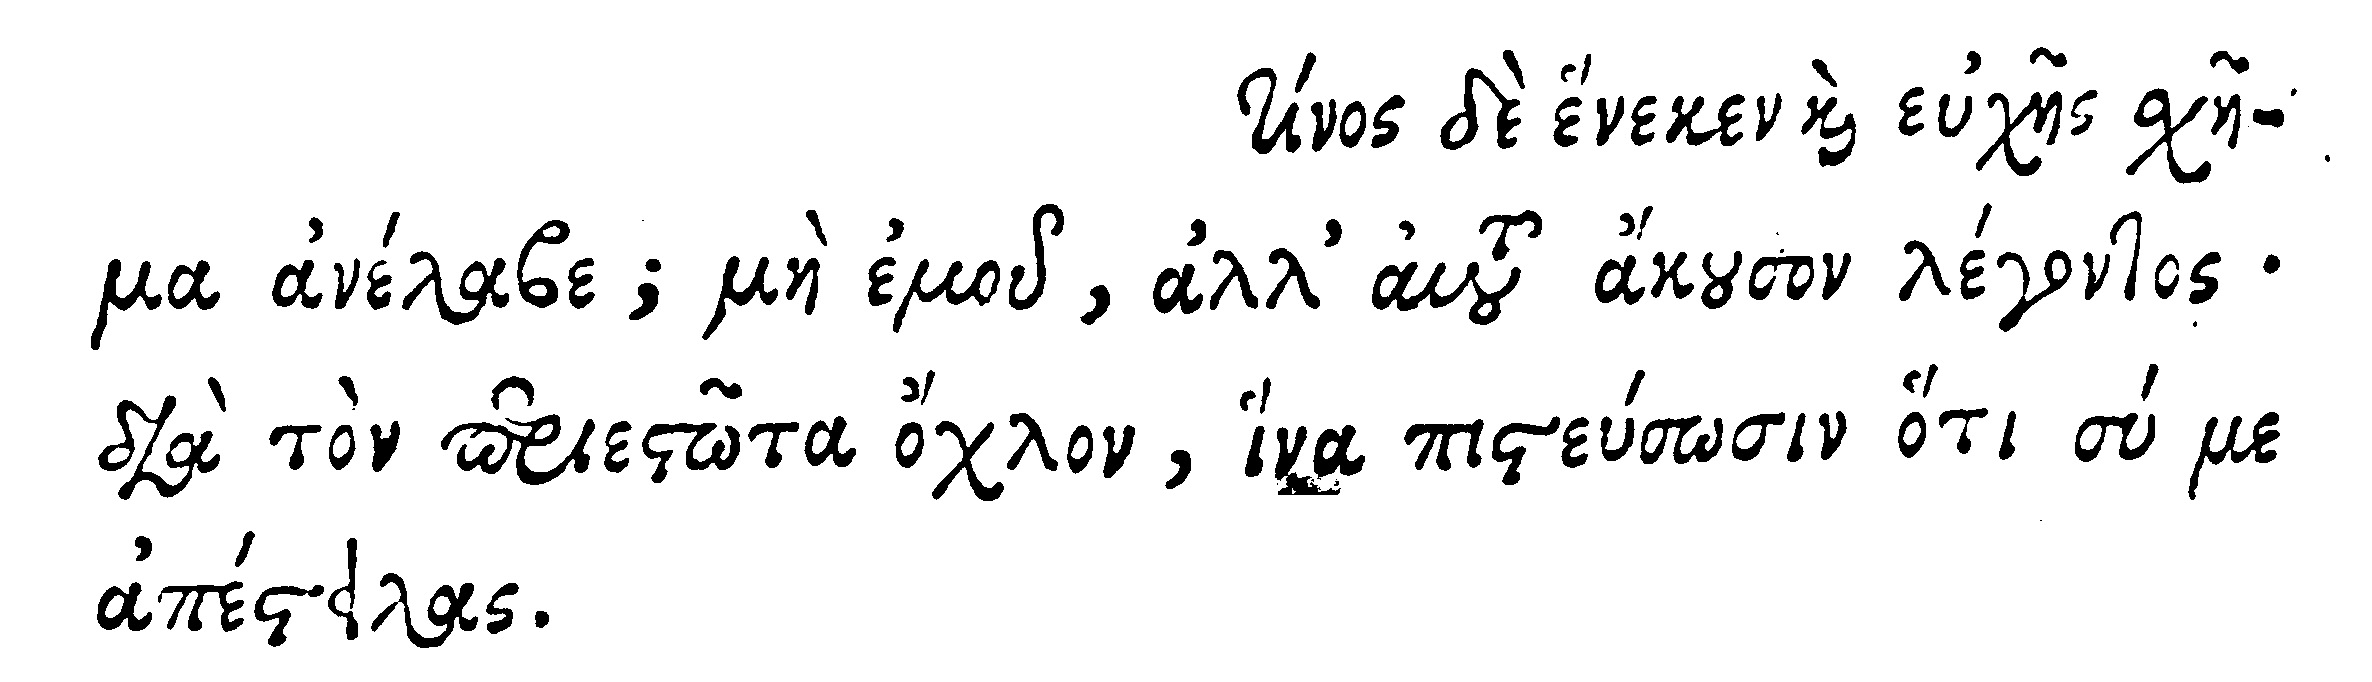 τίνος δὲ ἕνεκεν καὶ εὐχῆς χῆ-
μα ἀνέλαβε; μὴ ἐμοῦ, ἀλλ' αὐτοῦ ἄκουσον λέγοντος·
διὰ τὸν περιεστῶτα ὄχλον, ἵνα πιστεύσωσιν ὅτι σύ με
ἀπέστειλας.